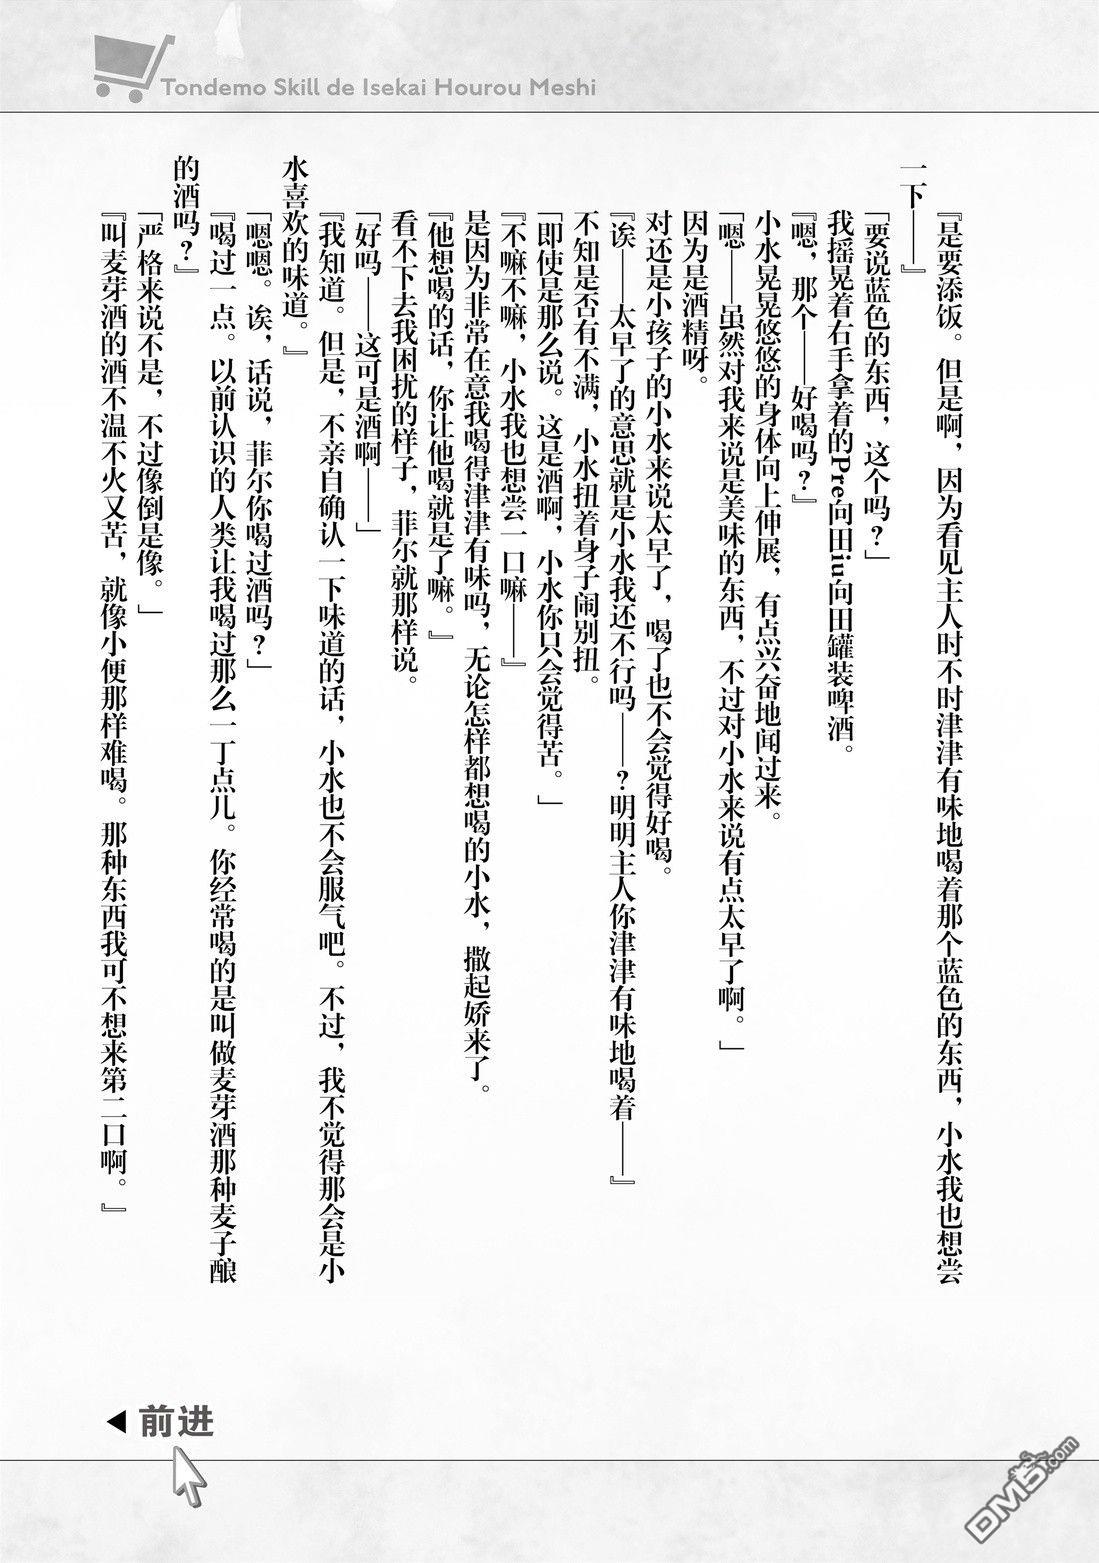 Tondemo Skill de Isekai Hourou Meshi
『是要添饭。但是啊，因为看见主人时不时津津有味地喝着那个蓝色的东西，小水我也想尝
一下——』
「要说蓝色的东西，这个吗？」
我摇晃着右手拿着的Pre向田iu向田罐装啤酒。
『嗯，那个——好喝吗？』
小水晃晃悠悠的身体向上伸展，有点兴奋地闻过来。
「嗯——虽然对我来说是美味的东西，不过对小水来说有点太早了啊。」
因为是酒精呀。
对还是小孩子的小水来说太早了，喝了也不会觉得好喝。
『诶——太早了的意思就是小水我还不行吗——？明明主人你津津有味地喝着——』
不知是否有不满，小水扭着身子闹别扭。
「即使是那么说。这是酒啊，小水你只会觉得苦。」
『不嘛不嘛，小水我也想尝一口嘛——』
是因为非常在意我喝得津津有味吗，无论怎样都想喝的小水，撒起娇来了。
『他想喝的话，你让他喝就是了嘛。』
看不下去我困扰的样子，菲尔就那样说。
「好吗——这可是酒啊——」
『我知道。但是，不亲自确认一下味道的话，小水也不会服气吧。不过，我不觉得那会是小
水喜欢的味道。』
「嗯嗯。诶，话说，菲尔你喝过酒吗？」
『喝过一点。以前认识的人类让我喝过那么一丁点儿。你经常喝的是叫做麦芽酒那种麦子酿
的酒吗？』
「严格来说不是，不过像倒是像。」
『叫麦芽酒的酒不温不火又苦，就像小便那样难喝。那种东西我可不想来第二口啊。』
前进
DM5.com